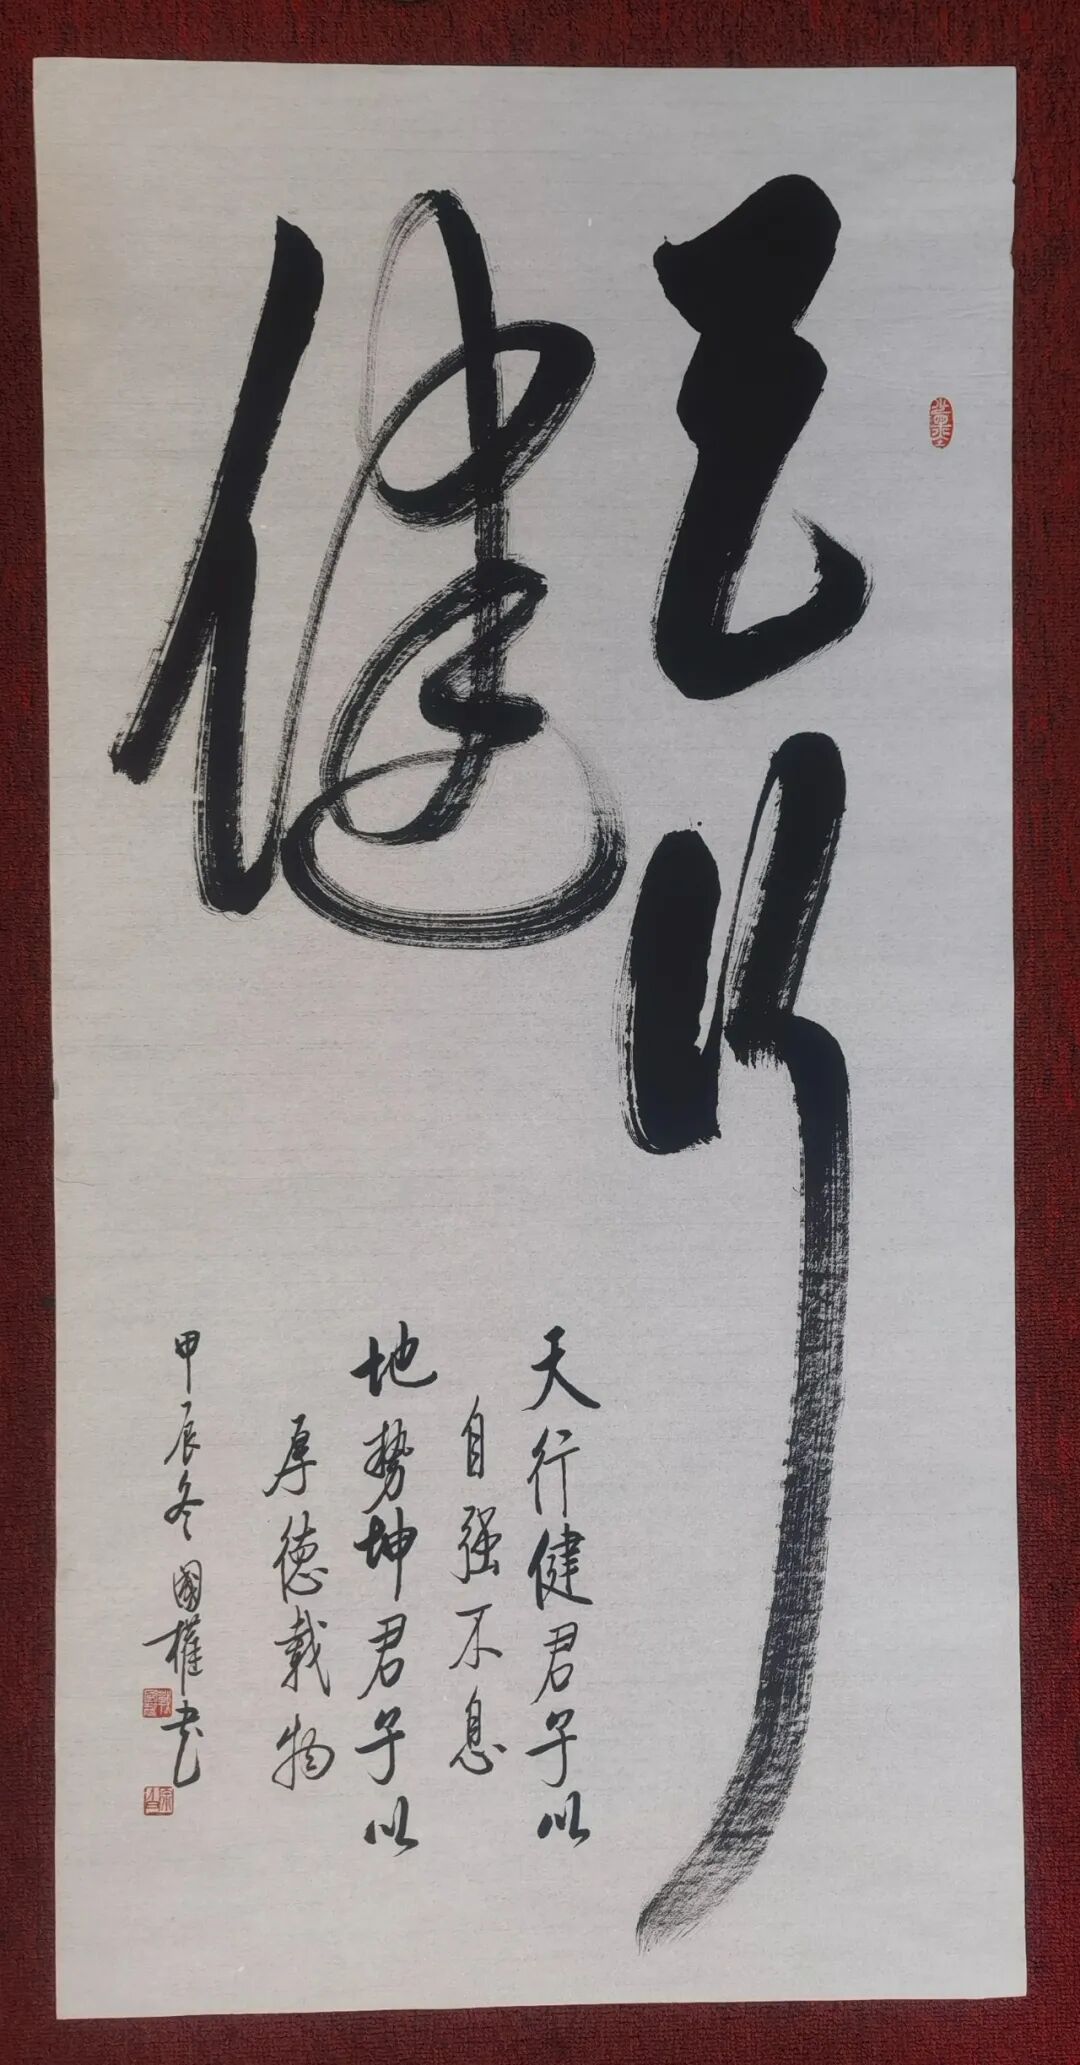 天行
健
天行健君子以
自强不息
地势坤君子以
厚德载物
甲辰冬國權书